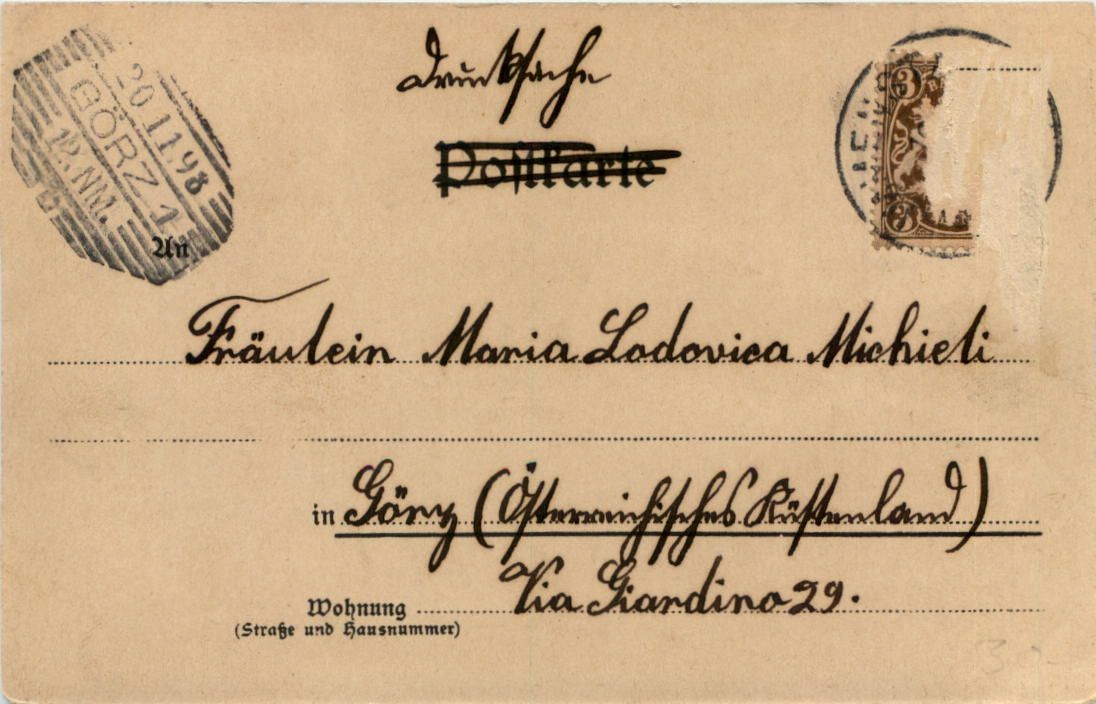 Drucksache
Postkarte
20.11.98
GÖRZ 1
12.NM.
3
3
An
Fräulein Maria Lodovica Michieli
in Görz (Österreichisches Küstenland)
Via Giardino 29.
Wohnung
(Straße und Hausnummer)